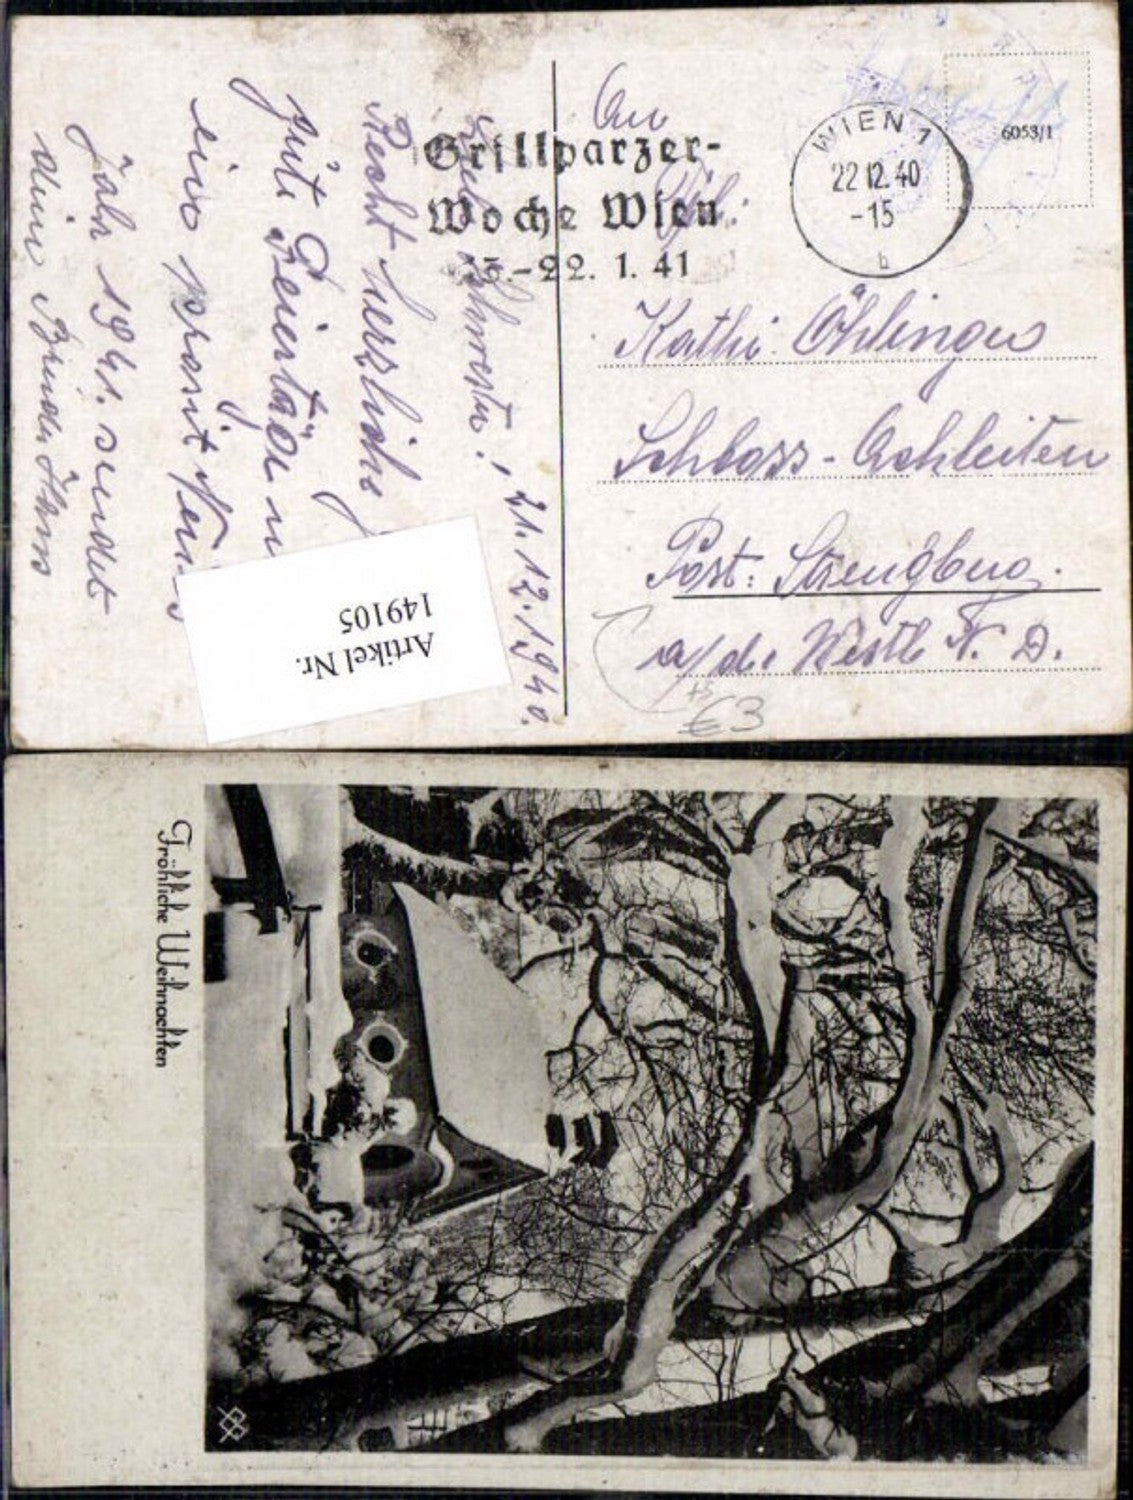 Grillparzer-
Woche Wien
15.-22. 1. 41
WIEN 1
22.12.40
-15
b
6053/1
An
Frl.
Kathi Öhlinger
Schloss-Achleiten
Post: Strengberg.
a/der Westb. N. D.
21.12.1940.
Liebe Schwester!
Recht herzliche
gute Feiertage u
ein prosit Neu
Jahr 1941. sendet
dein Bruder Hans
Artikel Nr.
149105
+5
€3
Fröhliche Weihnachten